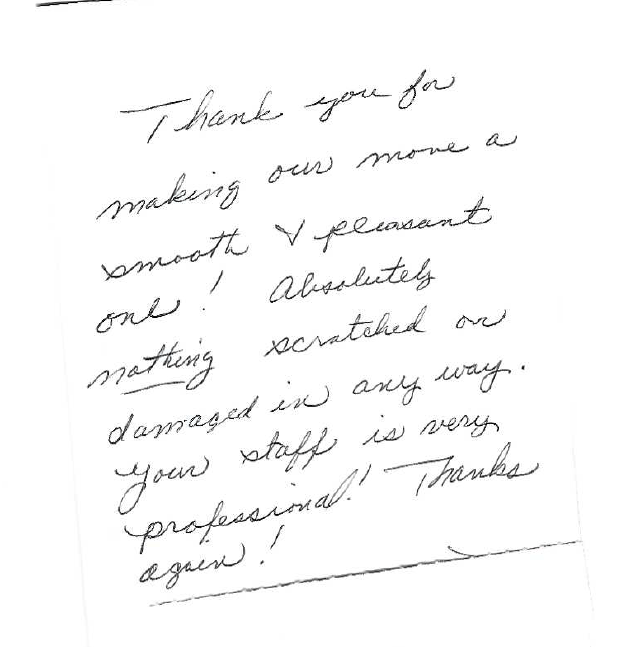 Thank you for
making our move a
smooth & pleasant
one! Absolutely
nothing scratched or
damaged in any way.
Your staff is very
professional! Thanks
again!